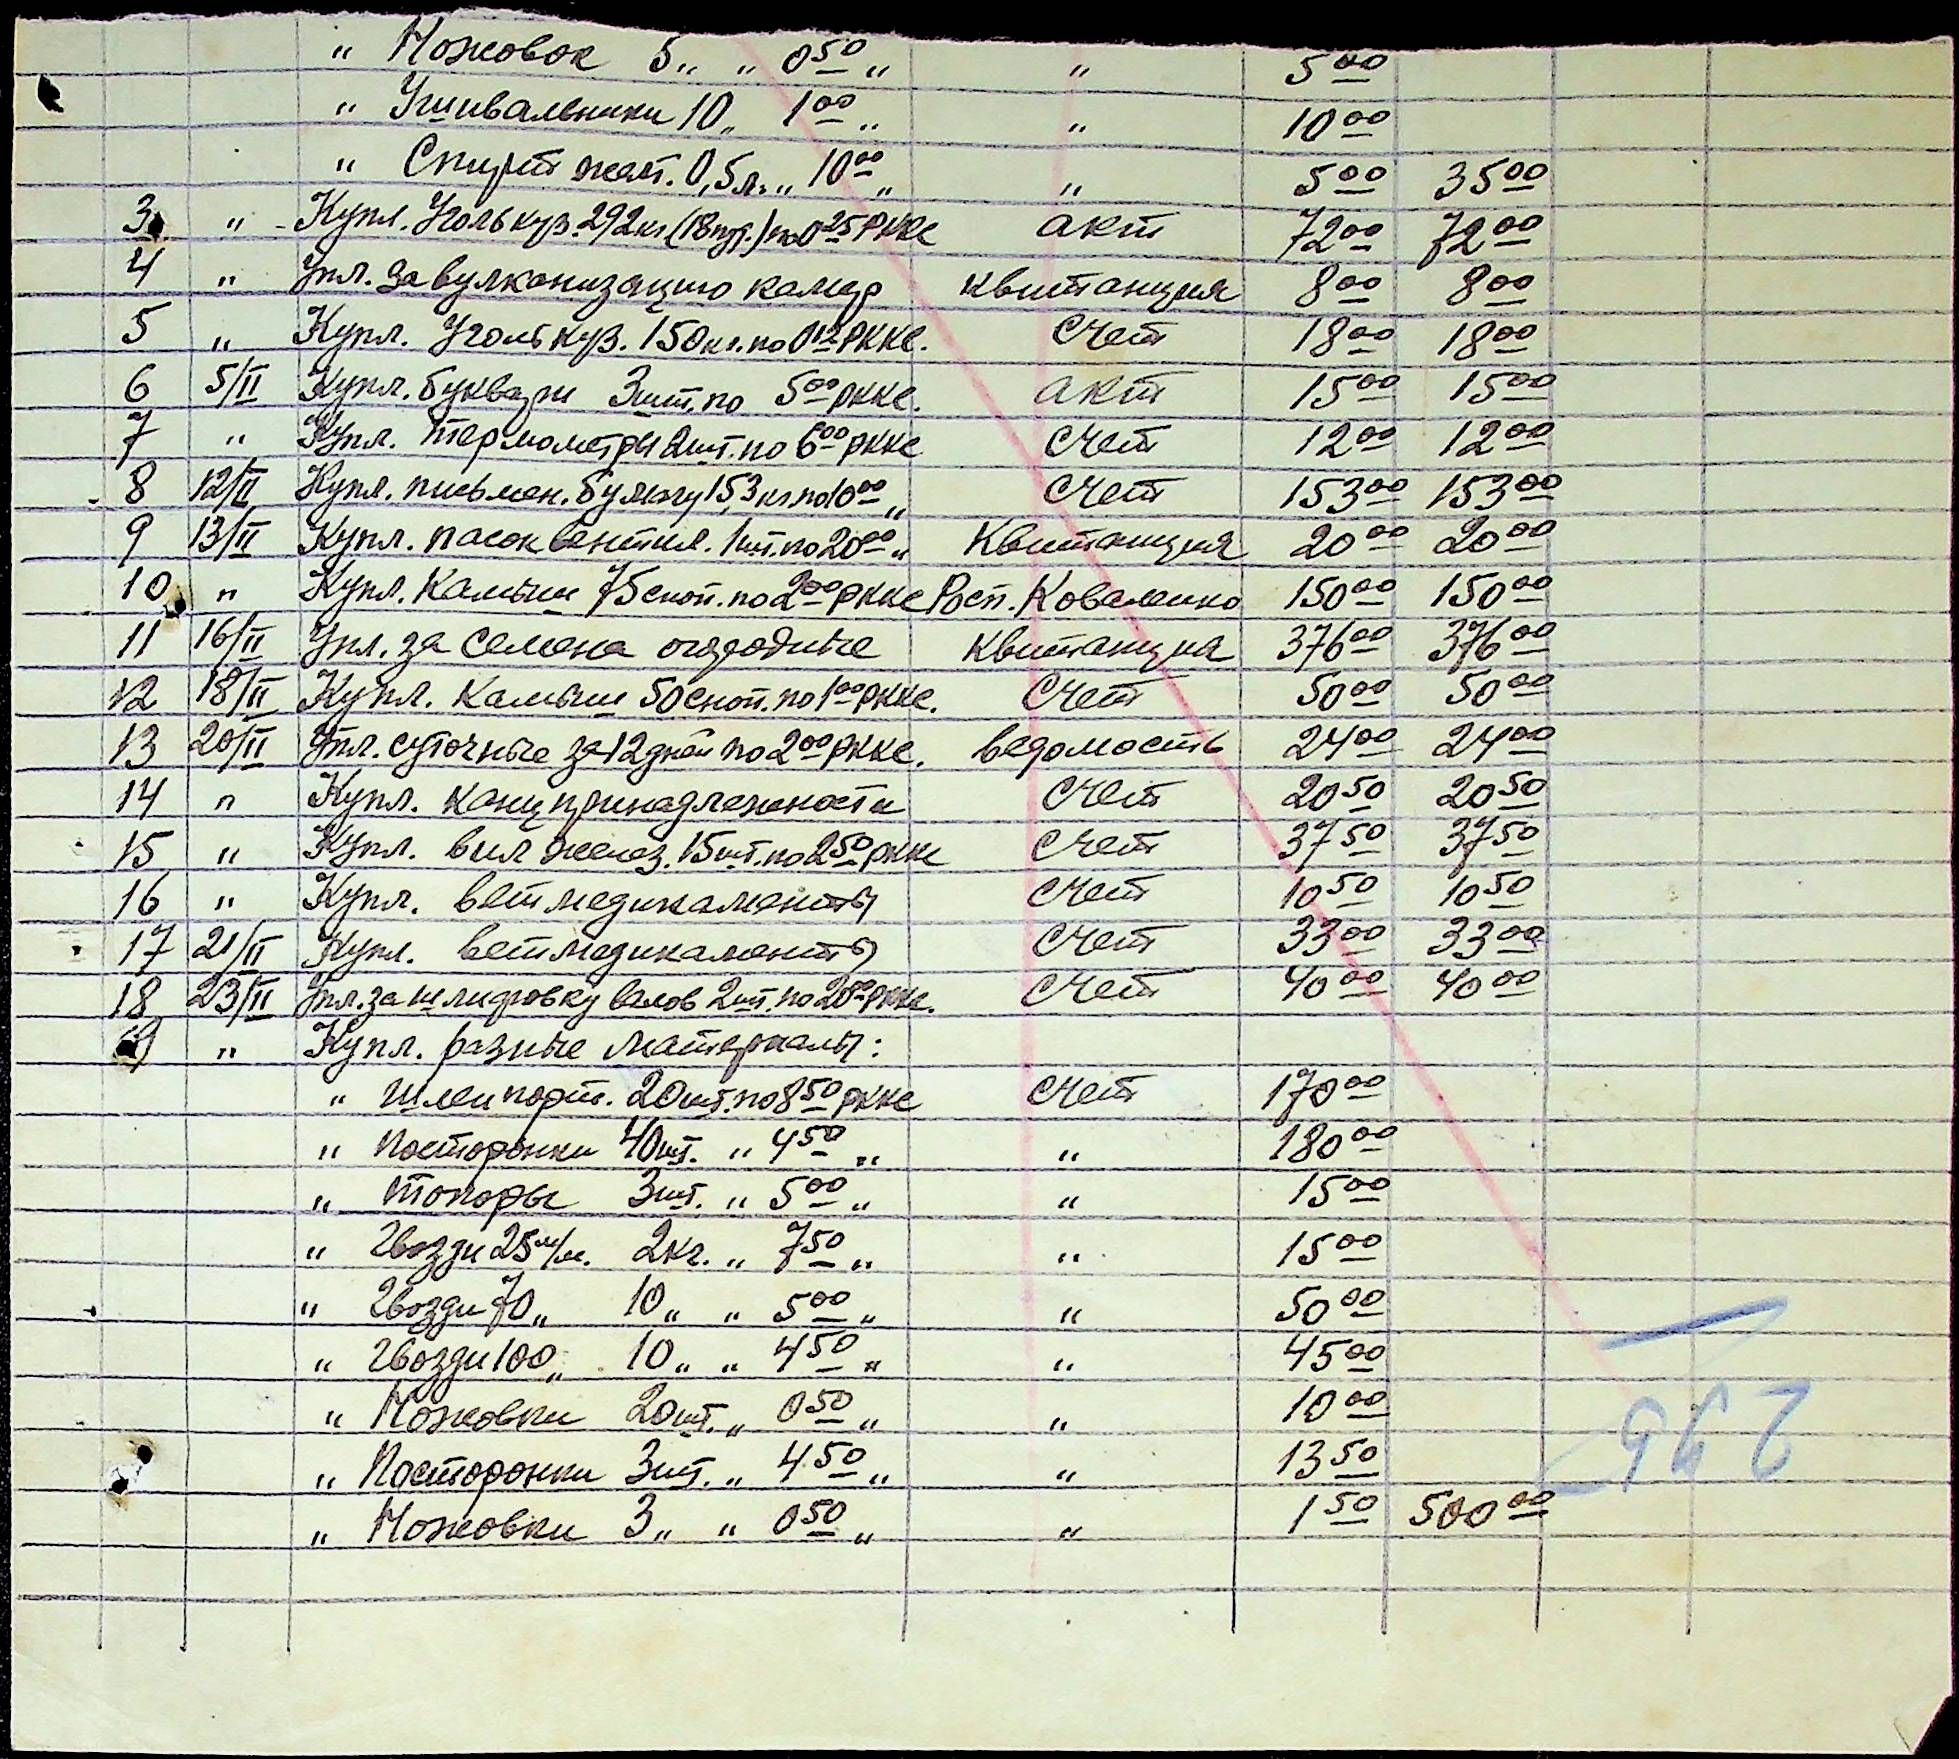 " Ножовок 5 " " 0 50 " " 5 00
" Ушивальники 10 " 1 00 " " 10 00
" Спирт жет. 0,5 л. " 10 00 " " 5 00 35 00
3 " Купл. Уголь куз. 292 кг (18 пуд.) по 0 25 РККС акт 72 00 72 00
4 " Упл. за вулканизацию камер квитанция 8 00 8 00
5 " Купл. Уголь куз. 150 кг. по 0 12 РККС. Счет 18 00 18 00
6 5/II Купл. буквари 3 шт. по 5 00 РККС. акт 15 00 15 00
7 " Купл. термометры 2 шт. по 6 00 РККС Счет 12 00 12 00
8 12/II Купл. письмен. бумагу 15,3 кг по 10 00 " Счет 153 00 153 00
9 13/II Купл. пасок вентил. 1 шт. по 20 00 " Квитанция 20 00 20 00
10 " Купл. Камыш 75 сноп. по 2 00 РККС Росп. Коваленко 150 00 150 00
11 16/II Упл. за семена огородные квитанция 376 00 376 00
12 18/II Купл. Камыш 50 сноп. по 1 00 РККС. Счет 50 00 50 00
13 20/II Упл. суточные за 12 дней по 2 00 РККС. ведомость 24 00 24 00
14 " Купл. канцпринадлежности Счет 20 50 20 50
15 " Купл. вил желез. 15 шт. по 2 50 РККС Счет 37 50 37 50
16 " Купл. ветмедикаменты Счет 10 50 10 50
17 21/II Купл. ветмедикаменты Счет 33 00 33 00
18 23/II Упл. за шлифовку валов 2 шт. по 20 00 РККС. Счет 40 00 40 00
19 " Купл. разные материалы:
" Шлеи порт. 20 шт. по 8 50 РККС Счет 170 00
" Посторонки 40 шт. " 4 50 " " 180 00
" топоры 3 шт. " 5 00 " " 15 00
" Гвозди 25 м/м. 2 кг. " 7 50 " " 15 00
" Гвозди 70 " 10 " " 5 00 " " 50 00
" Гвозди 100 " 10 " " 4 50 " " 45 00
" Ножовки 20 шт. " 0 50 " " 10 00
" Посторонки 3 шт. " 4 50 " " 13 50
" Ножовки 3 " " 0 50 " " 1 50 500 00